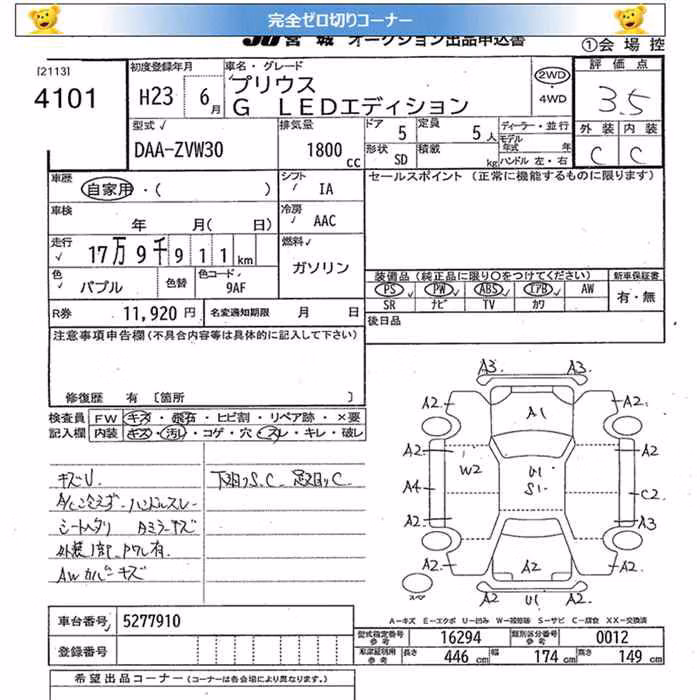 完全ゼロ切りコーナー
JU宮城 オークション出品申込書
①会場控
[2113]
4101
初度登録年月
H23 6月
車名・グレード
プリウス
G LEDエディション
2WD
・
4WD
評価点
3.5
外装 内装
C C
型式✓
DAA-ZVW30
排気量
1800cc
ドア 5 定員 5人
形状 SD 積載 kg
ディーラー・並行
モデル年式 年
ハンドル 左・右
車歴
自家用・( )
シフト✓
IA
セールスポイント(正常に機能するものに限ります)
車検
年 月( 日)
冷房✓
AAC
走行✓
17万9千911km
燃料✓
ガソリン
色✓
パブル
色替
色コード✓
9AF
装備品(純正品に限り○をつけてください) 新車保証書
PS✓ PW✓ ABS✓ エアB✓ AW
SR ナビ TV カワ
有・無
R券 11,920円
名変通知期限 月 日
後日品
注意事項申告欄(不具合内容等は具体的に記入して下さい)
修復歴 有 [箇所 ]
検査員記入欄
FW キズ・飛石・ヒビ割・リペア跡・×要
内装 キズ・汚レ・コゲ・穴・スレ・キレ・破レ
キズU
A/C冷えず ハンドルスレ
シートヘタリ Rミラーキズ
外装1部、Pワレ有
AWカバーキズ
下廻りS.C 足廻りC
A3 A3
A2 A1 A2
A2 W2 U1 S1 A2
A4 C2
A2 A3
A2 A2 A2
U1
スペア
A—キズ E—エクボ U—凹み W—補修跡 S—サビ C—腐食 XX—交換済
車台番号✓ 5277910
登録番号
型式指定番号参考 16294 類別区分番号参考 0012
車庫証明用参考 長さ 446cm 幅 174cm 高さ 149cm
希望出品コーナー(コーナーは各会場により異なります。)